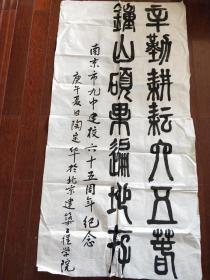 辛勤耕耘六五萅
鐘山碩果遍地存
南京市九中建校六十五周年 纪念
庚午夏日陶定华於北京建築工程学院